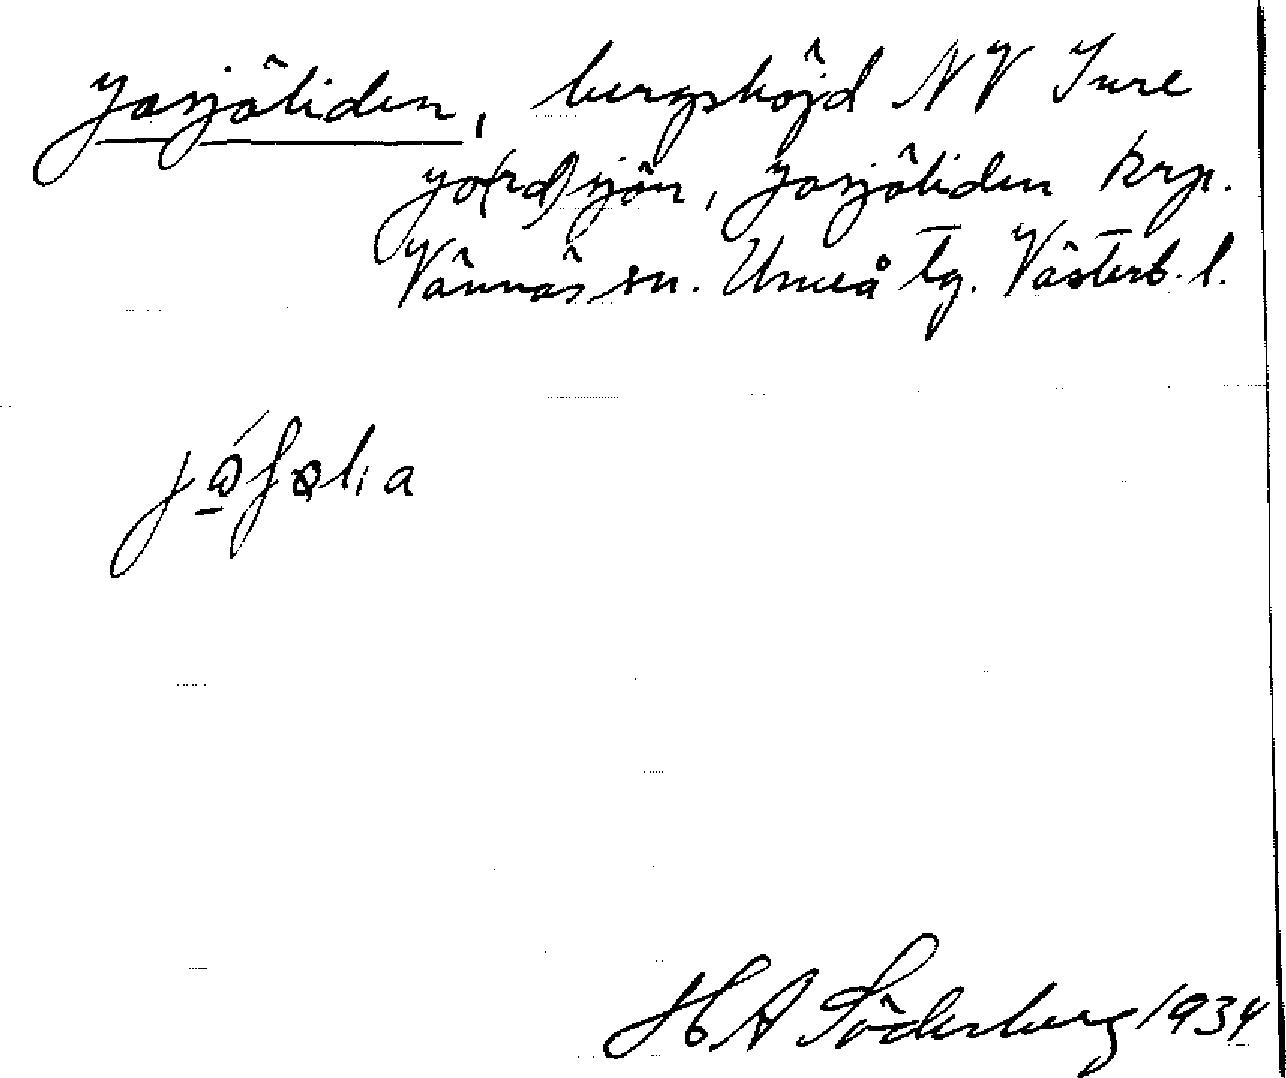 Josjöliden, bergshöjd NV Ture
Jo(rd)sjön, Josjöliden krp.
Vännäs sn. Umeå tg. Västerb. l.
H A Söderberg 1934